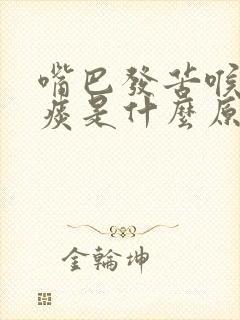 嘴巴發苦喉
痰是什麼原
金輪坤